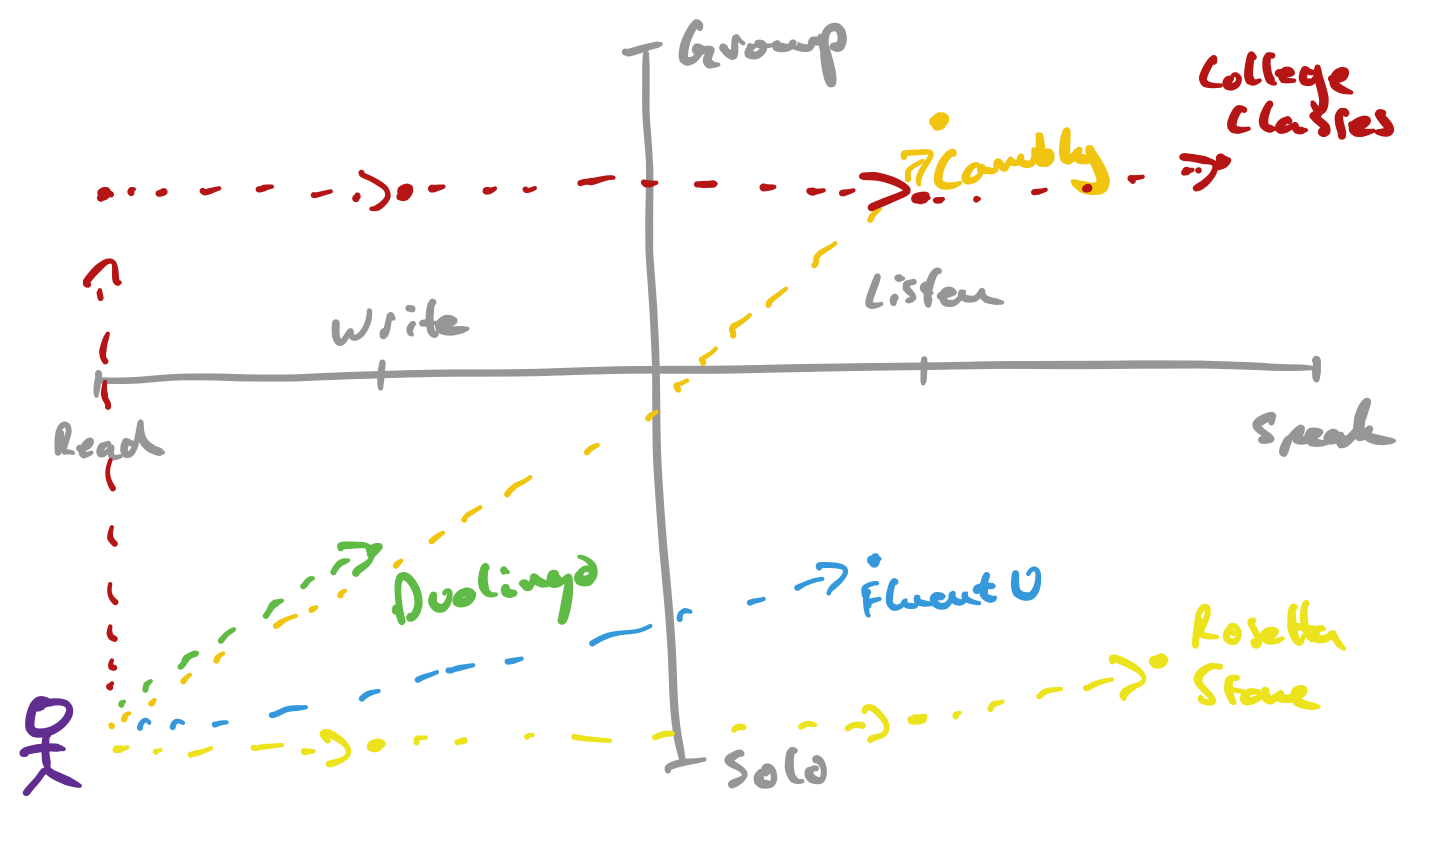 Group
College
Classes
Cambly
Listen
Write
Read
Speak
Duolingo
Fluent U
Rosetta
Stone
Solo